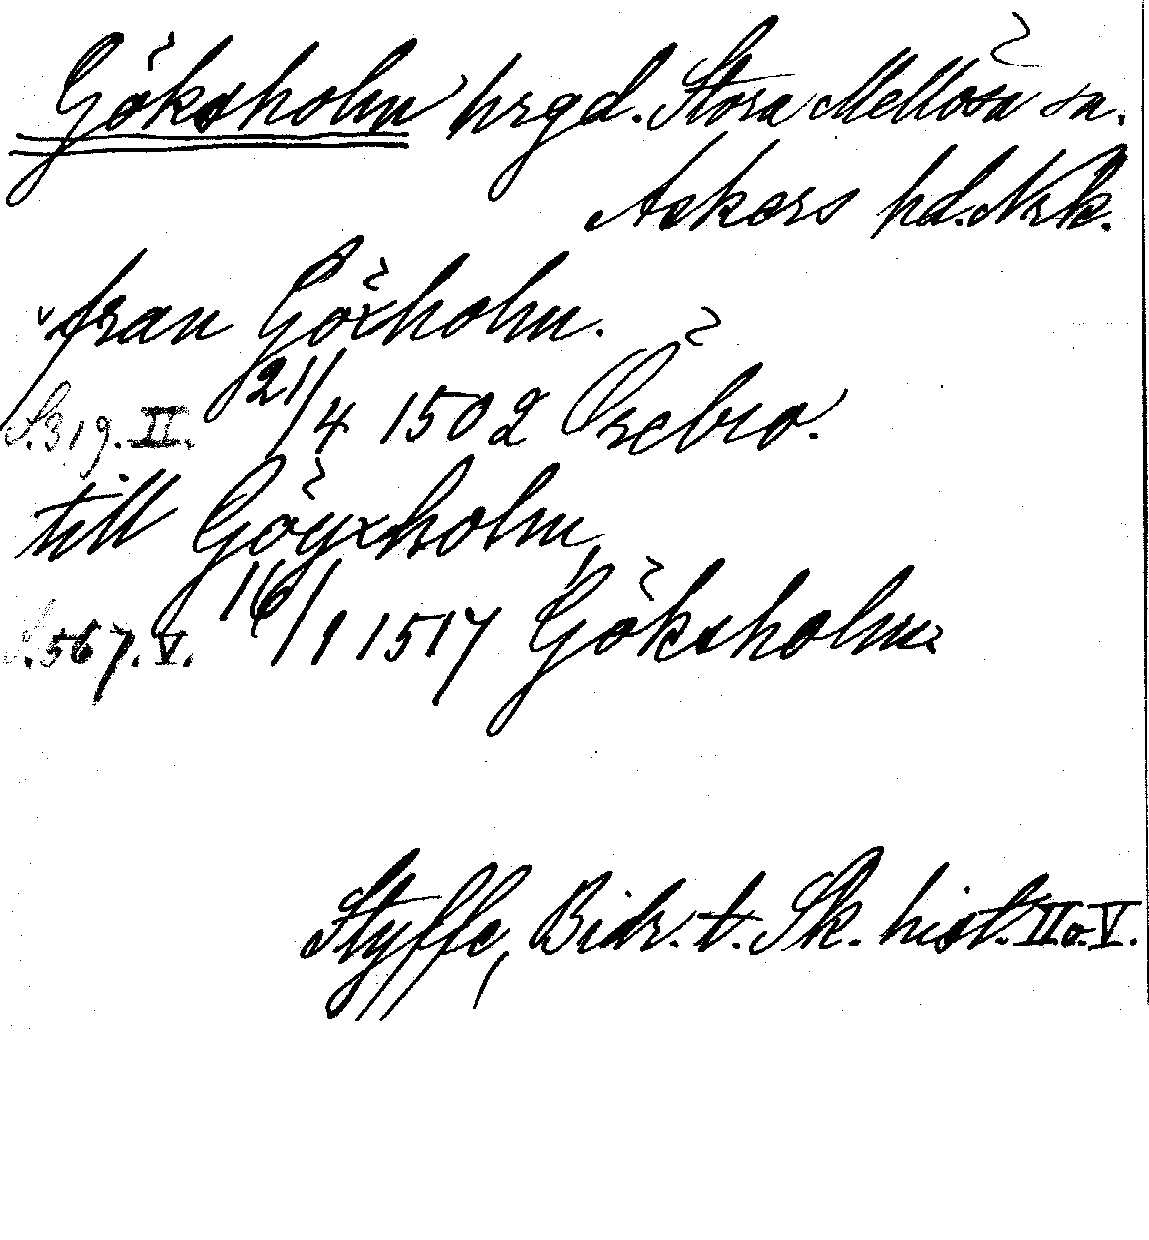 Göksholm hrgd. Stora Mellösa sn.
Askers hd. Nrk.
fran Göxholm.
S. 319. II. 21/4 1502 Örebro.
till Göyxholm,
S. 567. V. 16/1 1517 Göksholm
Styffe, Bidr. t. Sk. hist. II o. V.